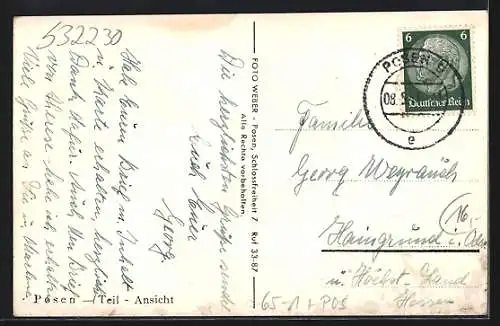 532230
Habe Euern Brief m. Inhalt
u. Karte erhalten, herzlich
Dank dafür. Auch den Brief
von Therese habe ich erhalten
Viele Grüße an Die in
Die herzlichsten Grüße sendet
Euch Euer
Georg.
Posen - Teil - Ansicht
FOTO WEBER - Posen, Schlossfreiheit 7 Ruf 33-87
Alle Rechte vorbehalten.
6 6
Deutsches Reich
POSEN
08.
e
Familie
Georg Weyrauch
16
Haingrund i. Odw.
u. Höchst-Land
Hessen
65-1 + POS